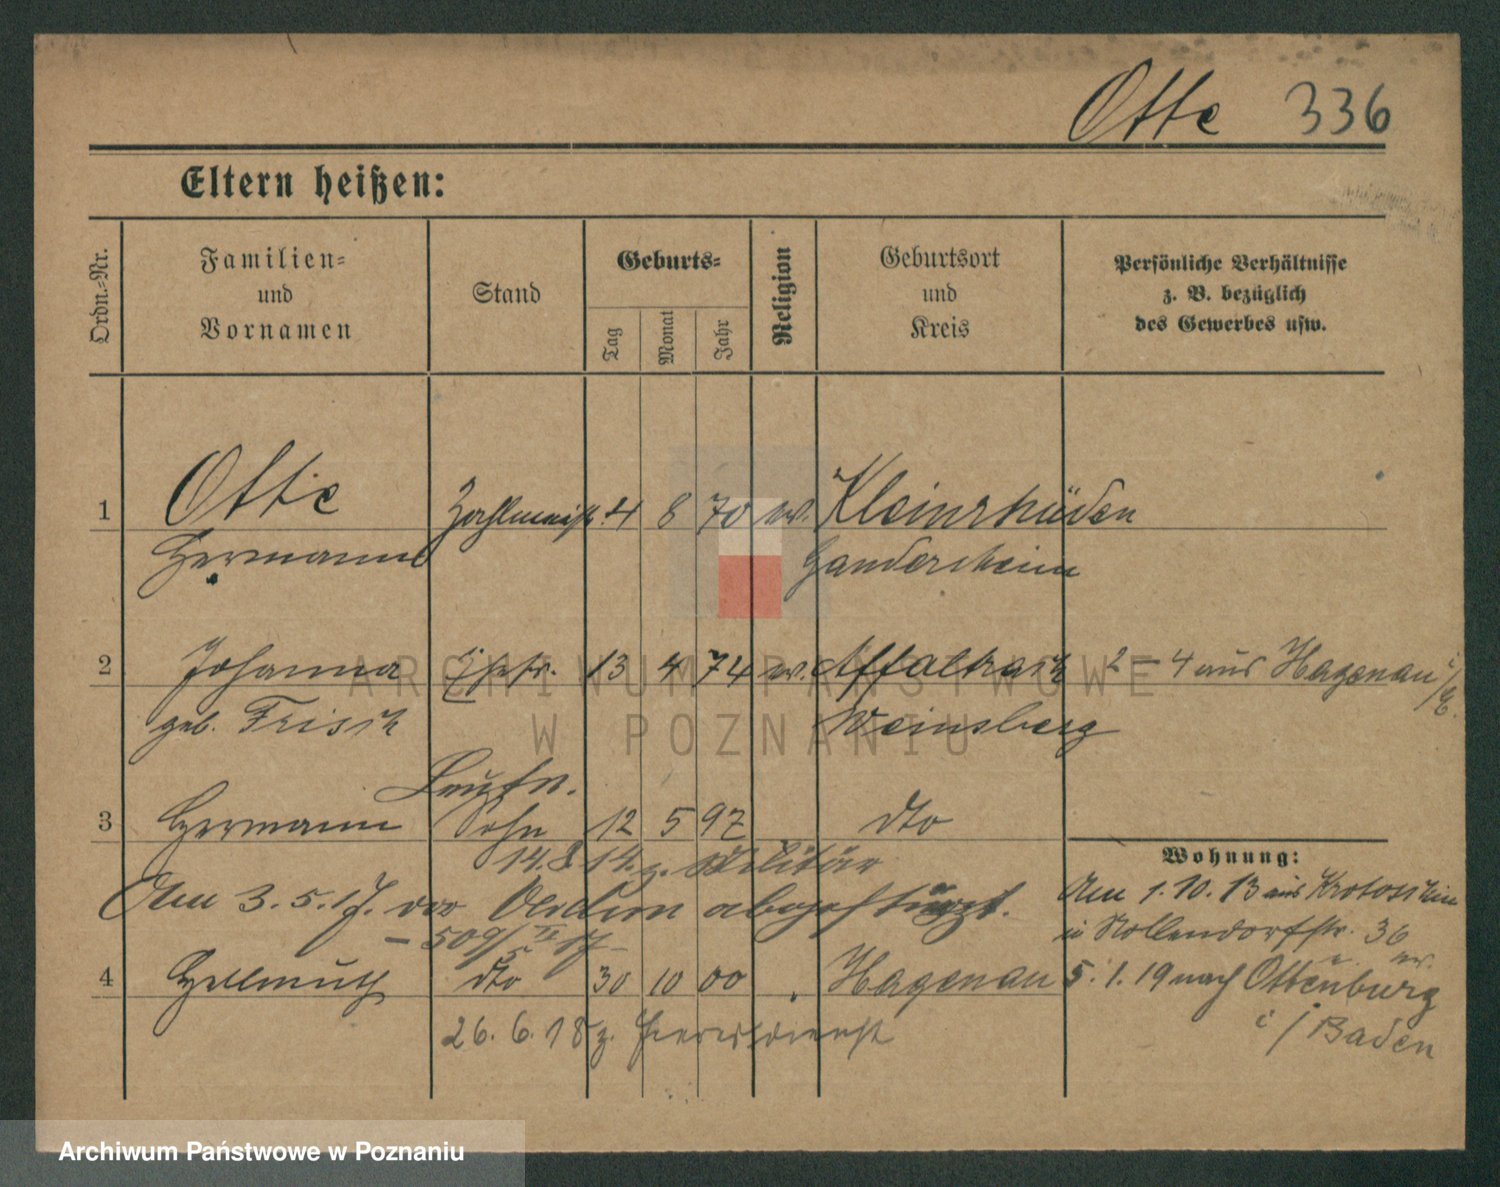 Otte 336
Eltern heißen:
Ordn.-Nr.
Familien-
und
Vornamen
Stand
Geburts-
Tag
Monat
Jahr
Religion
Geburtsort
und
Kreis
Persönliche Verhältnisse
z. B. bezüglich
des Gewerbes usw.
1 Otte Zahlmeistr. 4 8 70 ev. Kleinrhüden
Hermann Gandersheim
2 Johanna Ehefr. 13 4 74 ev. Affaltrach 2-4 aus Hagenau i/E.
geb. Frisch Weinsberg
Leutn.
3 Hermann Sohn 12 5 97 dto
14.8.14. z. Militär
Am 3.5.17. vor abgestürzt.
- 509/ 17 -
4 Hellmuth dto 30 10 00 Hagenau
26.6.18 z. Heeresdienst
Wohnung:
Am 1.10.13 aus Krotoschin
n. Nollendorfstr. 36
5.1.19 nach Offenburg
i/Baden
ARCHIWUM PAŃSTWOWE
W POZNANIU
Archiwum Państwowe w Poznaniu